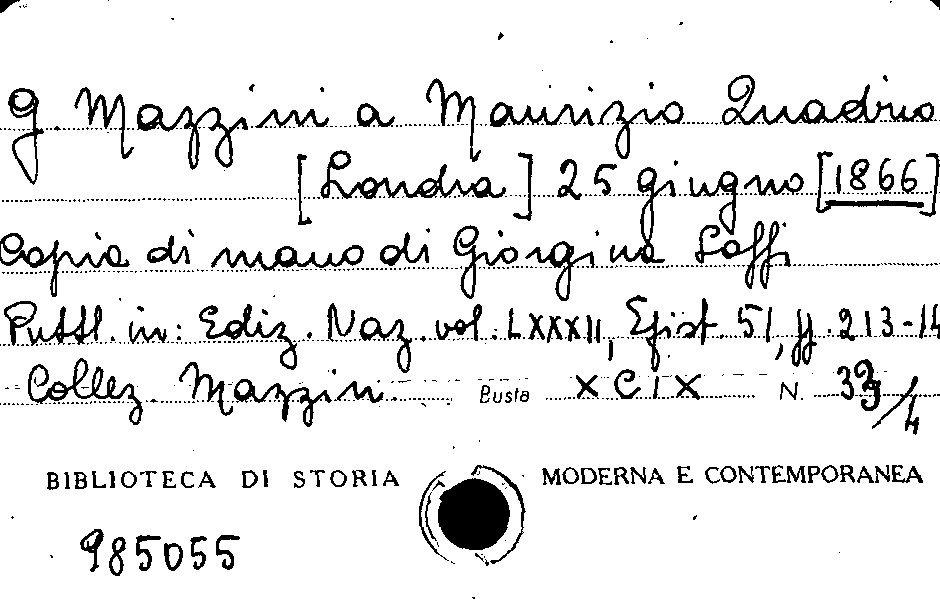 G. Mazzini a Maurizio Quadrio
[Londra] 25 giugno [1866]
Copia di mano di Giorgina Saffi
Pubbl. in: Ediz. Naz. vol. LXXXII, Epist. 51, pp. 213-14
Collez. Mazzin. Busta XCIX N. /4
BIBLIOTECA DI STORIA MODERNA E CONTEMPORANEA
985055